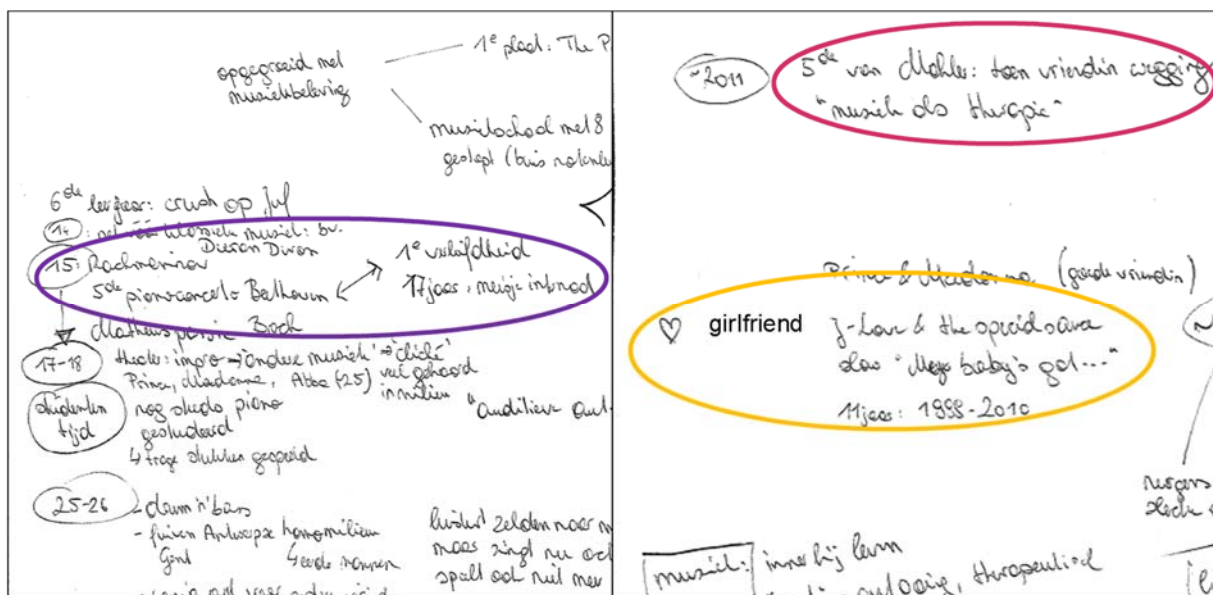 opgegroeid met
muziekbeleving
1e plaat: The P
muziekschool met 8
gestopt (buis notenle
6de leerjaar: crush op juf
14: net vóór klassiek muziek: bv.
Duran Duran
15: Rachmaninov
5de pianoconcerto Beethoven
1e verliefdheid
17 jaar, meisje internaat
Matheuspassie Bach
17-18
theater: impro → andere muziek → 'cliché'
Prince, Madonna, Abba (25) veel gehoord
in milieu
studenten
tijd
nog steeds piano
gestudeerd
↳ trage stukken gespeeld
"auditieve aut
25-26
- drum'n'bass
- fuiven Antwerpse homomilieu
Gent
luistert zelden naar m
maar zingt nu oo
speelt ook niet meer
~2011
5de van Mahler: toen vriendin wegging
"muziek als therapie"
Prince & Madonna (goede vriendin)
♡ girlfriend
J-Love & the special sauce
slow "My baby's got..."
11 jaar: 1999-2010
nergens
slecht
muziek:
innerlijk leven
therapeutisch